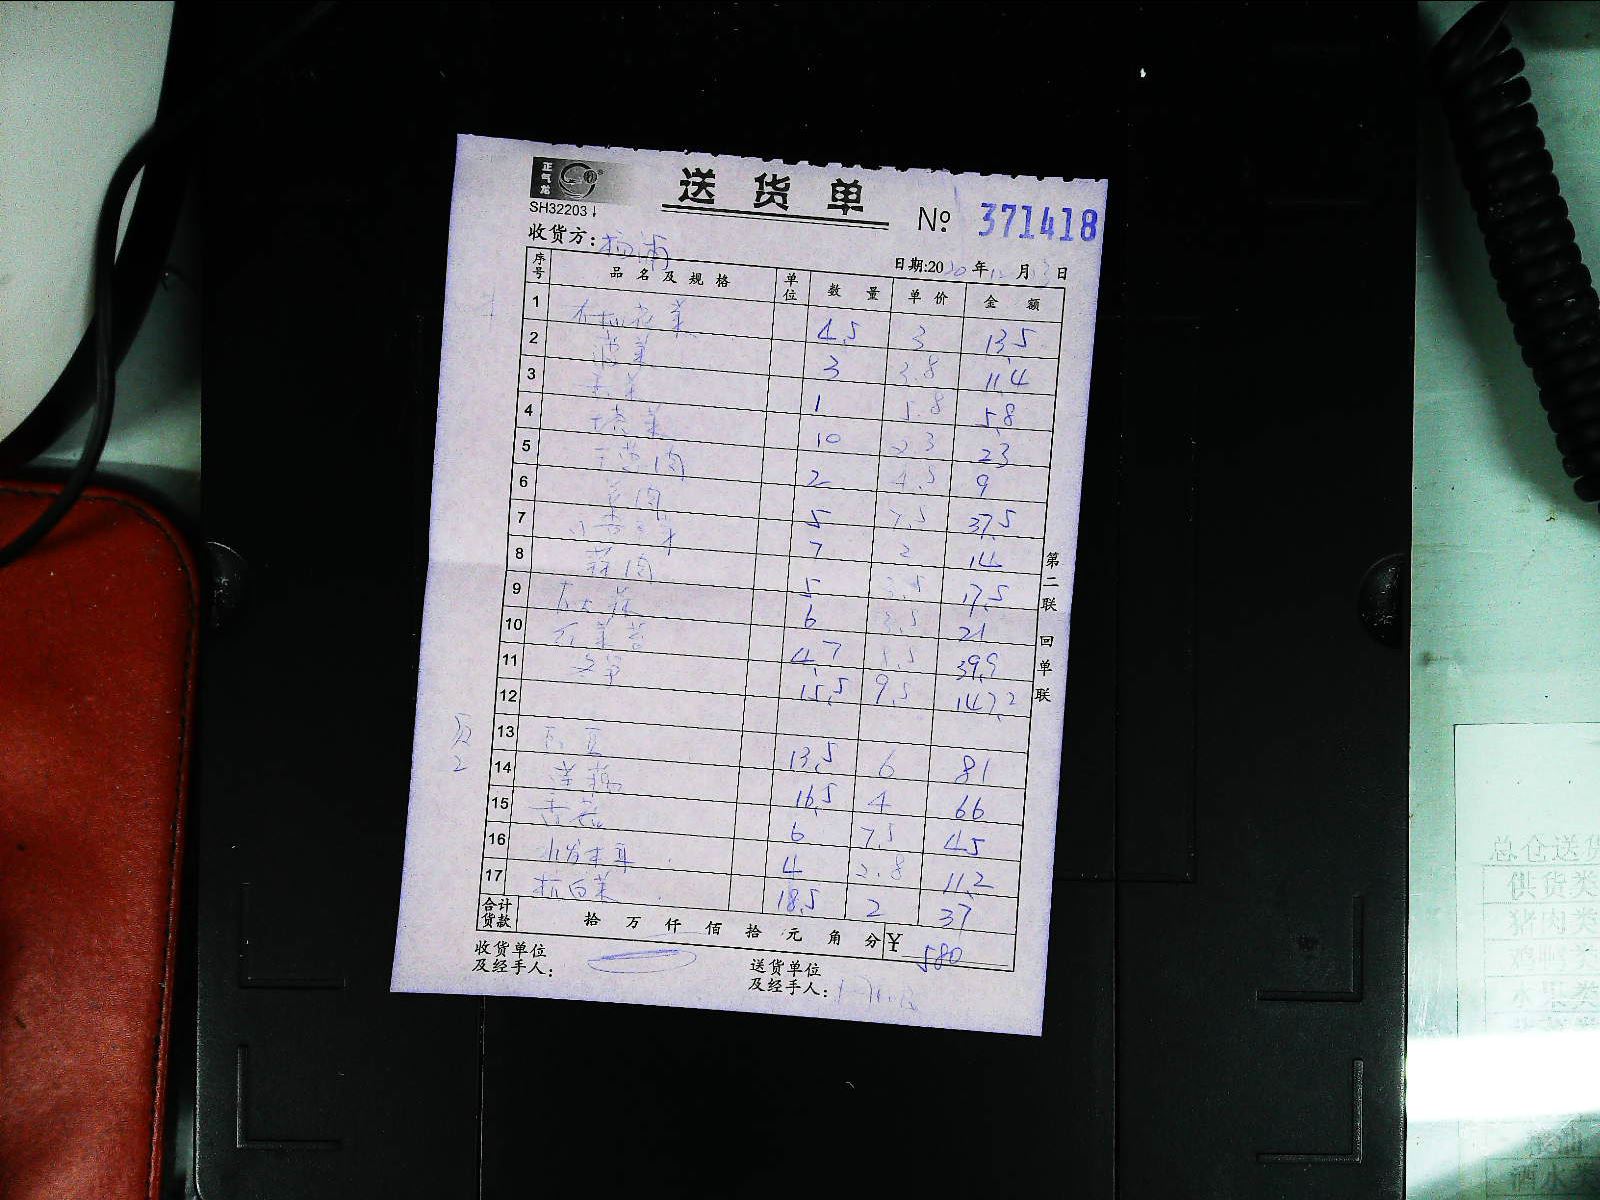 正气龙
送货单
SH32203
№ 371418
收货方: 杨浦
日期:2020年12月13日
序号 品名及规格 单位 数量 单价 金额
1 有机花菜 4.5 3 13.5
2 菠菜 3 3.8 11.4
3 1 5.8 5.8
4 10 2.3 23
5 2 4.5 9
6 姜肉 5 7.5 37.5
7 7 2 14
8 蒜肉 5 3.5 17.5
9 6 3.5 21
10 红菜苔 4.7 8.5 39.9
11 15.5 9.5 147.2
12
13 13.5 6 81
14 16.5 4 66
15 6 7.5 45
16 水发木耳 4 2.8 11.2
17 杭白菜 18.5 2 37
合计货款 拾 万 仟 佰 拾 元 角 分 ¥ 580
收货单位及经手人:
送货单位及经手人:
第二联 回单联
总仓送货
供货类
猪肉类
水果类
酒水类